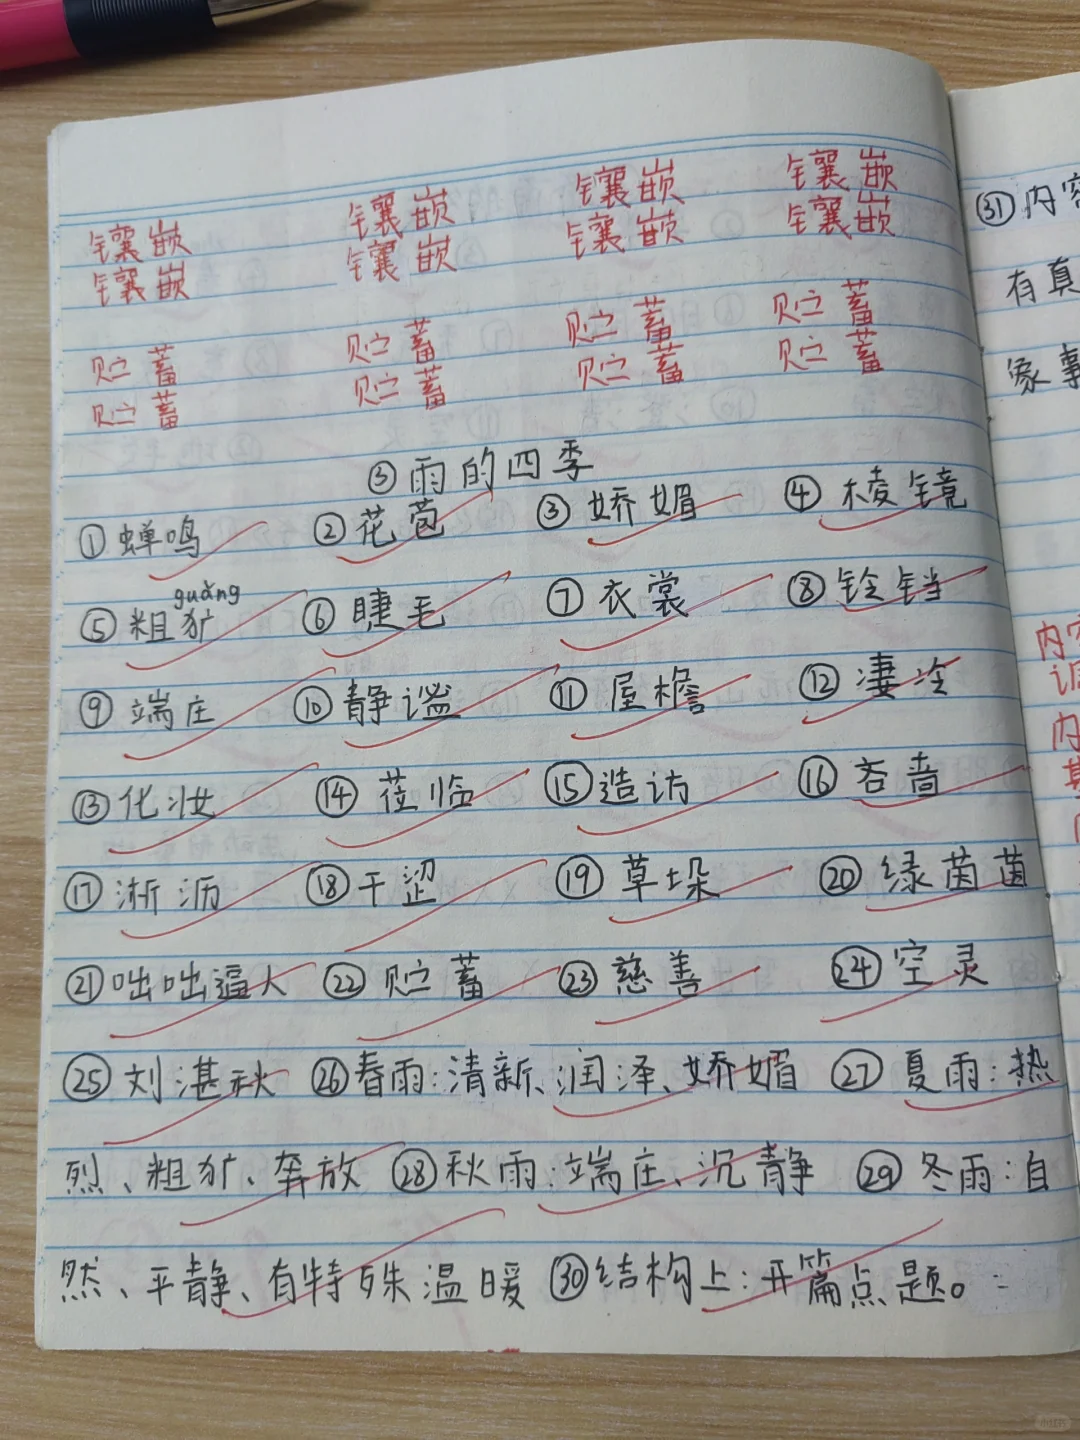 镶嵌 镶嵌 镶嵌 镶嵌
镶嵌 镶嵌 镶嵌 镶嵌
贮蓄 贮蓄 贮蓄 贮蓄
贮蓄 贮蓄 贮蓄 贮蓄
③雨的四季
①蝉鸣 ②花苞 ③娇媚 ④棱镜
guǎng
⑤粗犷 ⑥睫毛 ⑦衣裳 ⑧铃铛
⑨端庄 ⑩静谧 ⑪屋檐 ⑫凄冷
⑬化妆 ⑭莅临 ⑮造访 ⑯吝啬
⑰淅沥 ⑱干涩 ⑲草垛 ⑳绿茵茵
㉑咄咄逼人 ㉒贮蓄 ㉓慈善 ㉔空灵
㉕刘湛秋 ㉖春雨:清新、润泽、娇媚 ㉗夏雨:热
烈、粗犷、奔放 ㉘秋雨:端庄、沉静 ㉙冬雨:自
然、平静、有特殊温暖 ㉚结构上:开篇点题。
㉛内容
有真
象事
内容
内